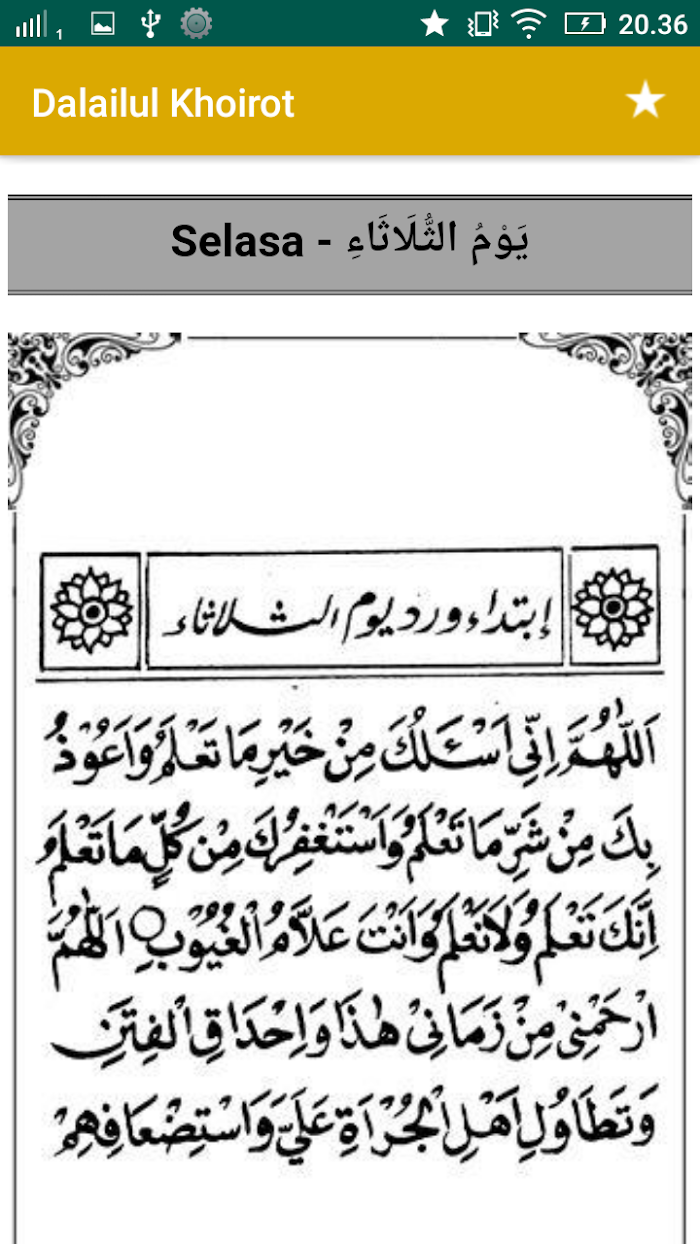 1 20.36
Dalailul Khoirot
Selasa - يَوْمُ الثُّلَاثَاءِ
إبتداء ورد يوم الثلاثاء
اَللّٰهُمَّ اِنِّي اَسْئَلُكَ مِنْ خَيْرِ مَا تَعْلَمُ وَاَعُوْذُ
بِكَ مِنْ شَرِّ مَا تَعْلَمُ وَاَسْتَغْفِرُكَ مِنْ كُلِّ مَا تَعْلَمُ
اِنَّكَ تَعْلَمُ وَلَا نَعْلَمُ وَاَنْتَ عَلَّامُ الْغُيُوْبِ اَللّٰهُمَّ
ارْحَمْنِيْ مِنْ زَمَانِيْ هٰذَا وَاِحْدَاقِ الْفِتَنِ
وَتَطَاوُلِ اَهْلِ الْجُرْاَةِ عَلَيَّ وَاسْتِضْعَافِهِمْ